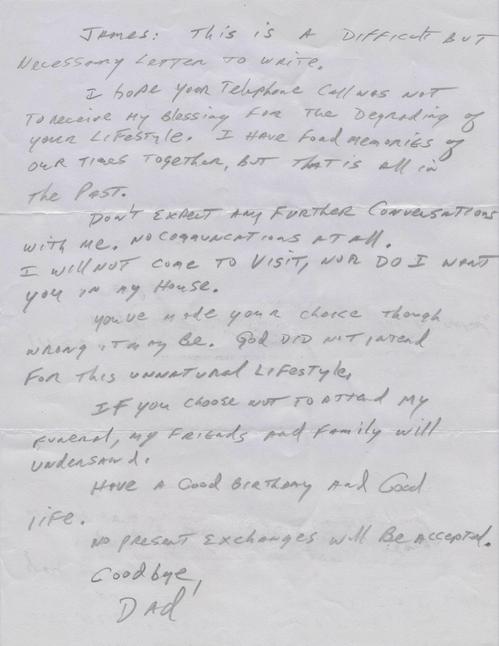 James: This is a Difficult But
Necessary Letter to write.
I hope your Telephone Call was not
To receive my Blessing For the Degrading of
your Lifestyle. I have fond memories of
our times Together, But that is all in
the Past.
Don't Expect Any Further Conversations
with me. No Communcations at all.
I will not come to visit, nor do I want
you in my House.
You've made your choice though
wrong it may be. God did not intend
For this unnatural Lifestyle.
If you choose not to attend my
funeral, my Friends and family will
undersand.
Have a Good Birthday and Good
life.
No present exchanges will Be accepted.
Goodbye,
Dad